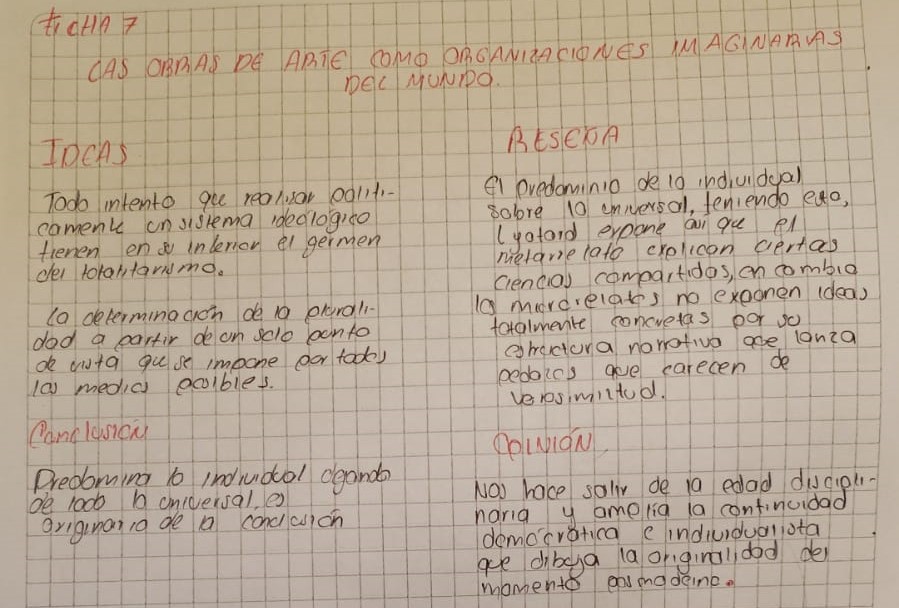 FICHA 7
LAS OBRAS DE ARTE COMO ORGANIZACIONES IMAGINARIAS
DEL MUNDO.
IDEAS
Todo intento que realizar politi-
camente un sistema ideologico
tienen en su interior el germen
del totalitarismo.
La determinación de la plurali-
dad a partir de un solo punto
de vista que se impone por todos
los medios posibles.
Conclusión
Predomina lo individual dejando
de lado lo universal, es
originaria de la conclusión
RESEÑA
El predominio de lo individual
sobre lo universal, teniendo esto,
Lyotard expone asi que el
metarrelato explican ciertas
ciencias compartidas, en cambio
la microrelatos no exponen ideas
totalmente concretas por su
estructura narrativa que lanza
que carecen de
verosimilitud.
OPINIÓN
Nos hace salir de la edad discipli-
naria y amplia la continuidad
democrática e individualista
que dibuja la originalidad del
momento posmoderno.